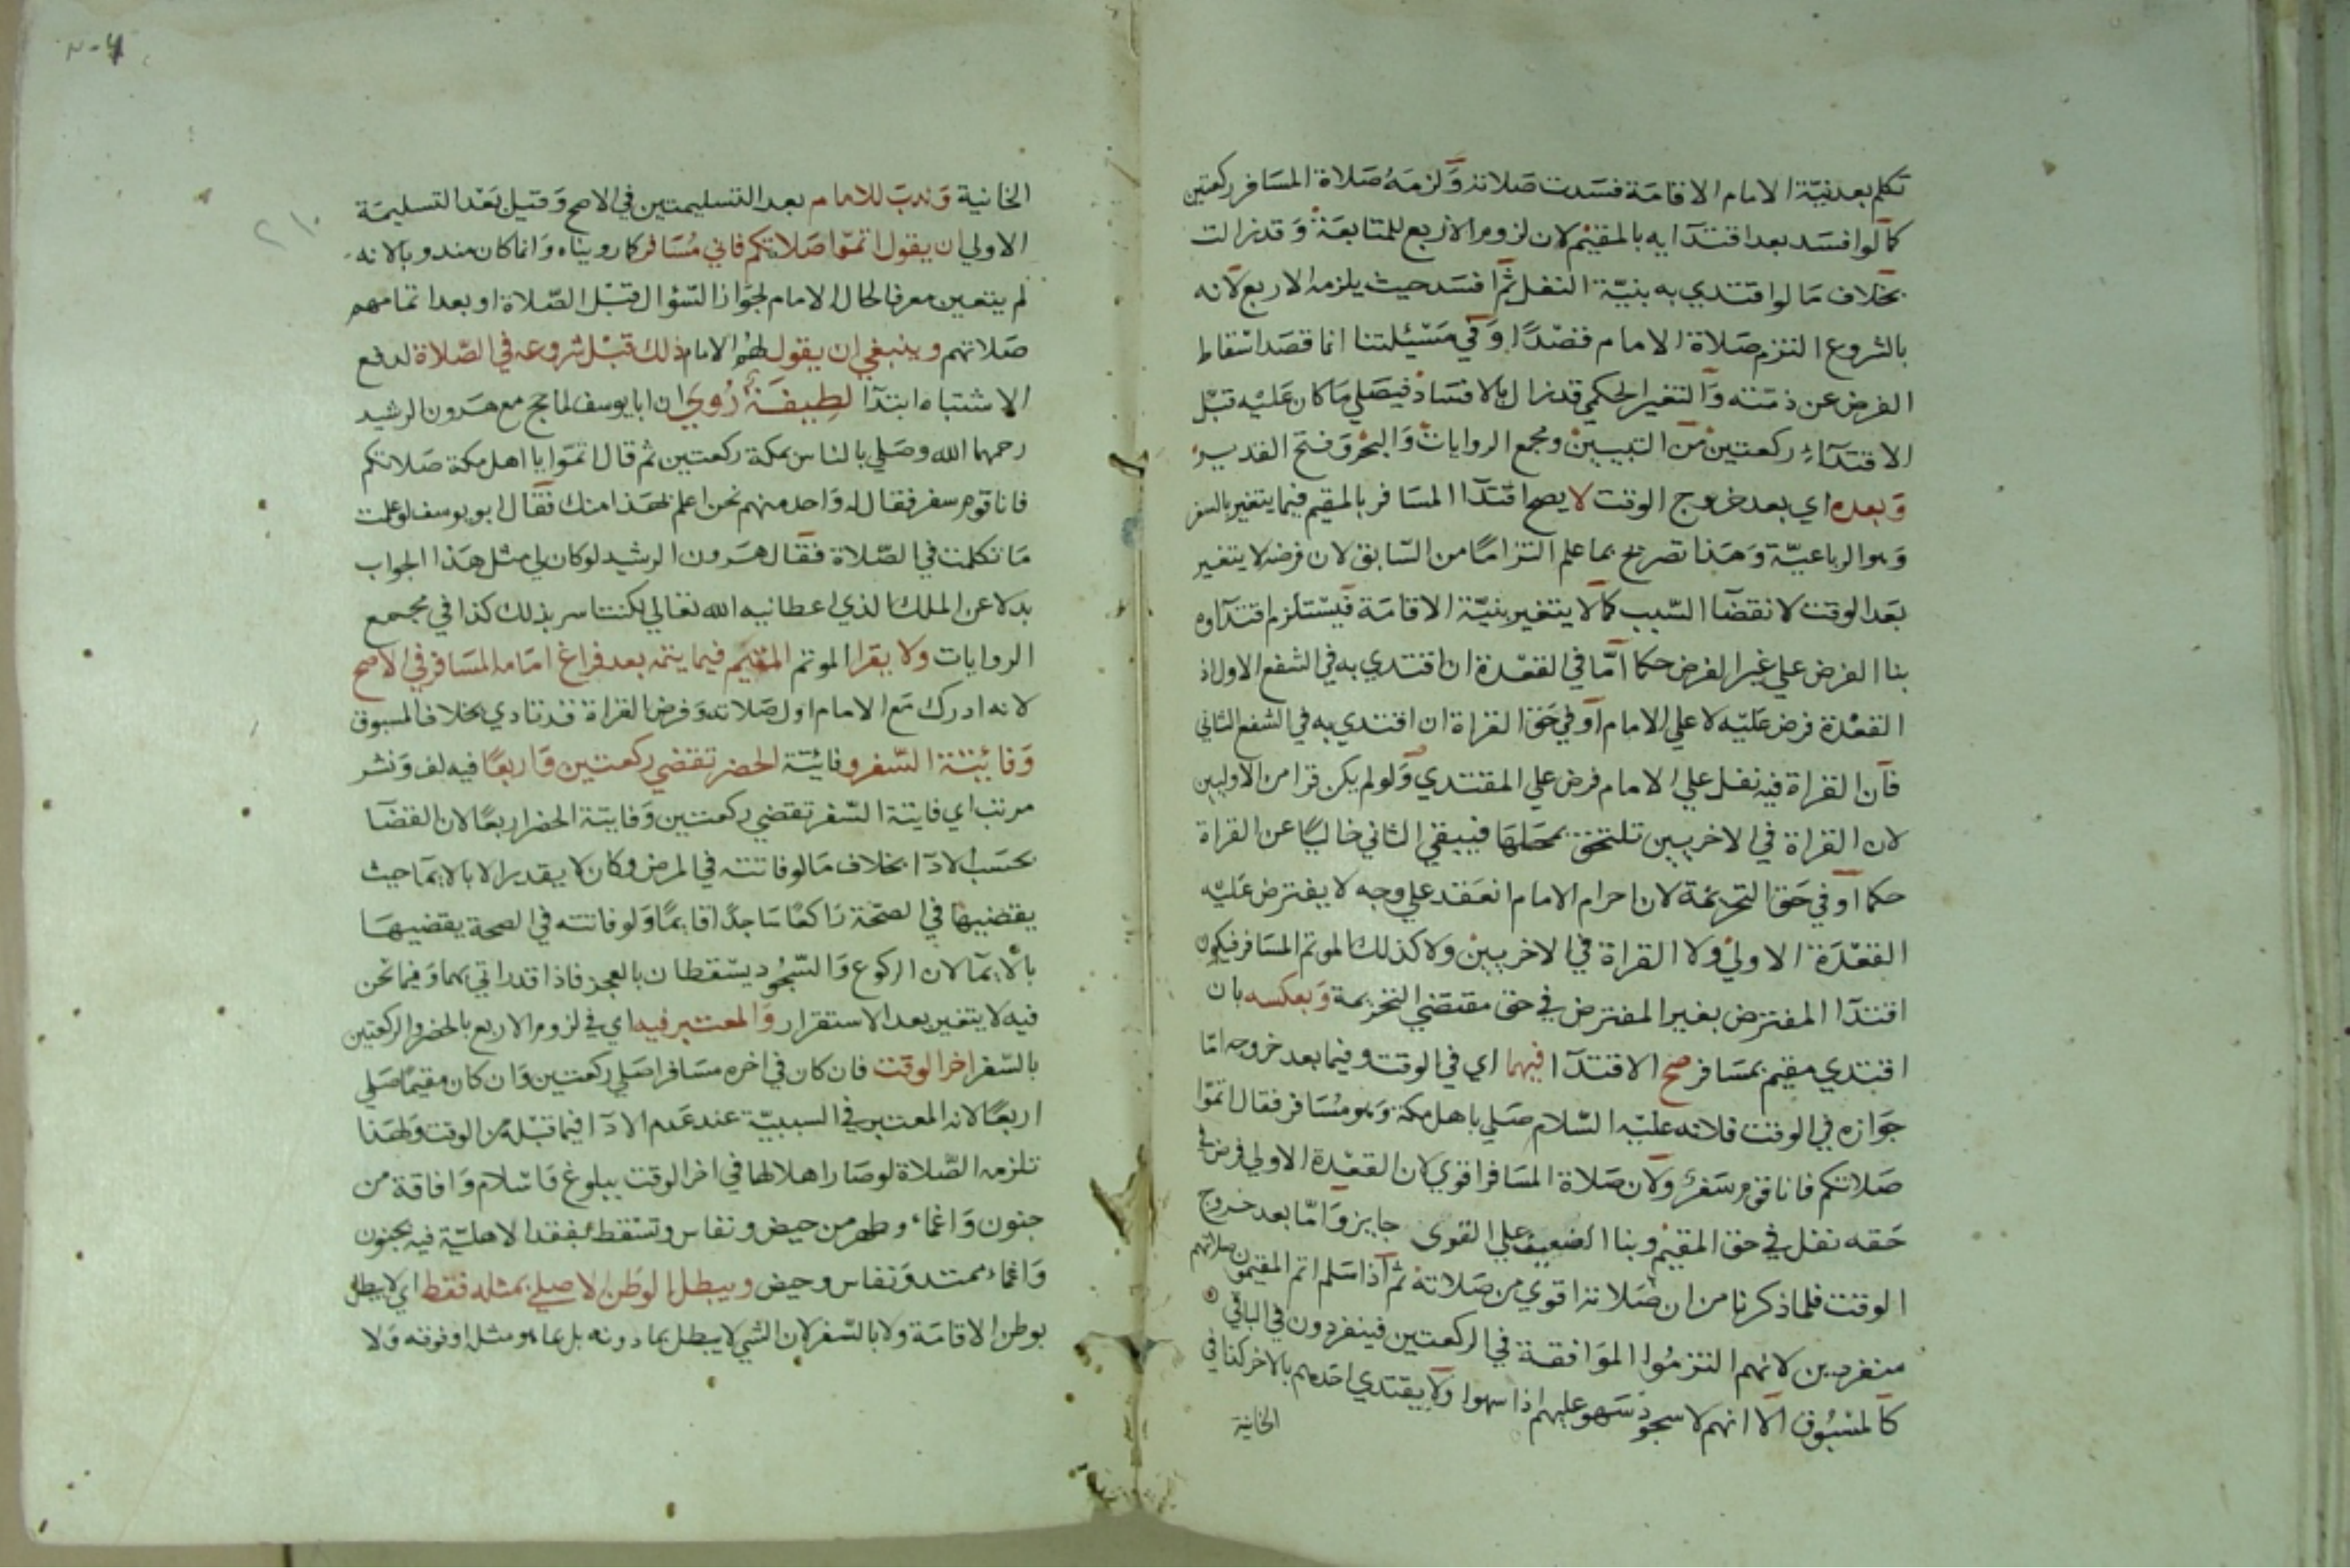 تكلم بعد نية الامام الاقامة فسدت صلاته ولزمه صلاة المسافر ركعتين
كما لو افسد بعد اقتدآيه بالمقيم لان لزوم الاربع للمتابعة وقد زالت
بخلاف ما لو اقتدي به بنية النفل ثم افسد حيث يلزمه الاربع لانه
بالشروع التزم صلاة الامام قصدًا وفي مسئيلتنا انما قصد اسقاط
الفرض عن ذمته والتغير الحكمي قد زال بالافساد فيصلي ما كان عليه قبل
الاقتدآء ركعتين من التبيين ومجمع الروايات والبحر وفتح القدير
وبعده اي بعد خروج الوقت لا يصح اقتدآ المسافر بالمقيم فيما يتغير بالسفر
وهو الرباعية وهذا تصريح بما علم التزامًا من السابق لان فرضه لا يتغير
بعد الوقت لانقضآ السبب كما لا يتغير بنية الاقامة فيستلزم اقتدآوه
بنا الفرض علي غير الفرض حكما امّا في القعدة ان اقتدي به في الشفع الاول اذ
القعدة فرض عليه لا علي الامام او في حق القراة ان اقتدي به في الشفع الثاني
فان القراة فيه نفل علي الامام فرض علي المقتدي ولو لم يكن قرا من الاوليين
لان القراة في الاخريين تلتحق بمحلها فيبقي الثاني خاليًا عن القراة
حكما او في حق التحريمة لان احرام الامام انعقد علي وجه لا يفترض عليه
القعدة الاولي ولا القراة في الاخريين ولا كذلك الموتم المسافر فيكون
اقتدآ المفترض بغير المفترض في حق مقتضي التحريمة وبعكسه بان
اقتدي مقيم بمسافر صح الاقتدآ فيهما اي في الوقت وفيما بعد خروجه امّا
جوازه في الوقت فلانه عليه السلام صلي باهل مكة وهو مسافر فقال اتموا
صلاتكم فانا قوم سفر ولان صلاة المسافر اقوي لان القعدة الاولي فرض في
حقه نفل في حق المقيم وبنا الضعيف علي القوي جايز وامّا بعد خروج
الوقت فلما ذكرنا من ان صلاته اقوي من صلاته ثم اذا سلم اتم المقيمون صلاتهم
منفردين لانهم التزموا الموافقة في الركعتين فينفردون في الباقي
كالمسبوق الا انهم لا سجود سهو عليهم اذا سهوا ولا يقتدي احدهم بالاخر كذا في
الخانية
الخانية وندب للامام بعد التسليمتين في الاصح وقيل بعد التسليمة
الاولي ان يقول اتموا صلاتكم فاني مسافر كما رويناه وانما كان مندوبا لانه
لم يتعين معرفا لحال الامام لجواز السؤال قبل الصلاة او بعد اتمامهم
صلاتهم وينبغي ان يقول لهم الامام ذلك قبل شروعه في الصلاة لدفع
الاشتباه ابتدآ لطيفة رُوي ان ابا يوسف لما حج مع هرون الرشيد
رحمهما الله وصلي بالناس بمكة ركعتين ثم قال اتموا يا اهل مكة صلاتكم
فانا قوم سفر فقال له واحد منهم نحن اعلم بهذا منك فقال ابو يوسف لو علمت
ما تكلمت في الصلاة فقال هرون الرشيد لو كان لي مثل هذا الجواب
بدلا عن الملك الذي اعطانيه الله تعالي لكنت اسر بذلك كذا في مجمع
الروايات ولا يقرا الموتم المقيم فيما يتمه بعد فراغ امامه المسافر في الاصح
لانه ادرك مع الامام اول صلاته وفرض القراة قد تادي بخلاف المسبوق
وفائتة السفر وفائتة الحضر تقضي ركعتين واربعًا فيه لف ونشر
مرتب اي فايتة السفر تقضي ركعتين وفايتة الحضر اربعًا لان القضآ
بحسب الادآ بخلاف ما لو فاتته في المرض وكان لا يقدر الا بالايما حيث
يقضيها في الصحة راكعًا ساجدًا قايمًا ولو فاتته في الصحة يقضيها
بالايمآ لان الركوع والسجود يسقطان بالعجز فاذا قدر اتي بهما وفيما نحن
فيه لا يتغير بعد الاستقرار والمعتبر فيه اي في لزوم الاربع بالحضر والركعتين
بالسفر اخر الوقت فان كان في اخره مسافرا صلي ركعتين وان كان مقيمًا صلي
اربعًا لانه المعتبر في السببية عند عدم الادآ فيما قبله من الوقت ولهذا
تلزمه الصلاة لو صار اهلا لها في اخر الوقت ببلوغ واسلام وافاقة من
جنون واغماء وطهر من حيض ونفاس وتسقط بفقد الاهلية فيه بجنون
واغماء ممتد ونفاس وحيض ويبطل الوطن الاصلي بمثله فقط اي لا يبطل
بوطن الاقامة ولا بالسفر لان الشي لا يبطل بما دونه بل بما هو مثله او فوقه ولا
٢١٠